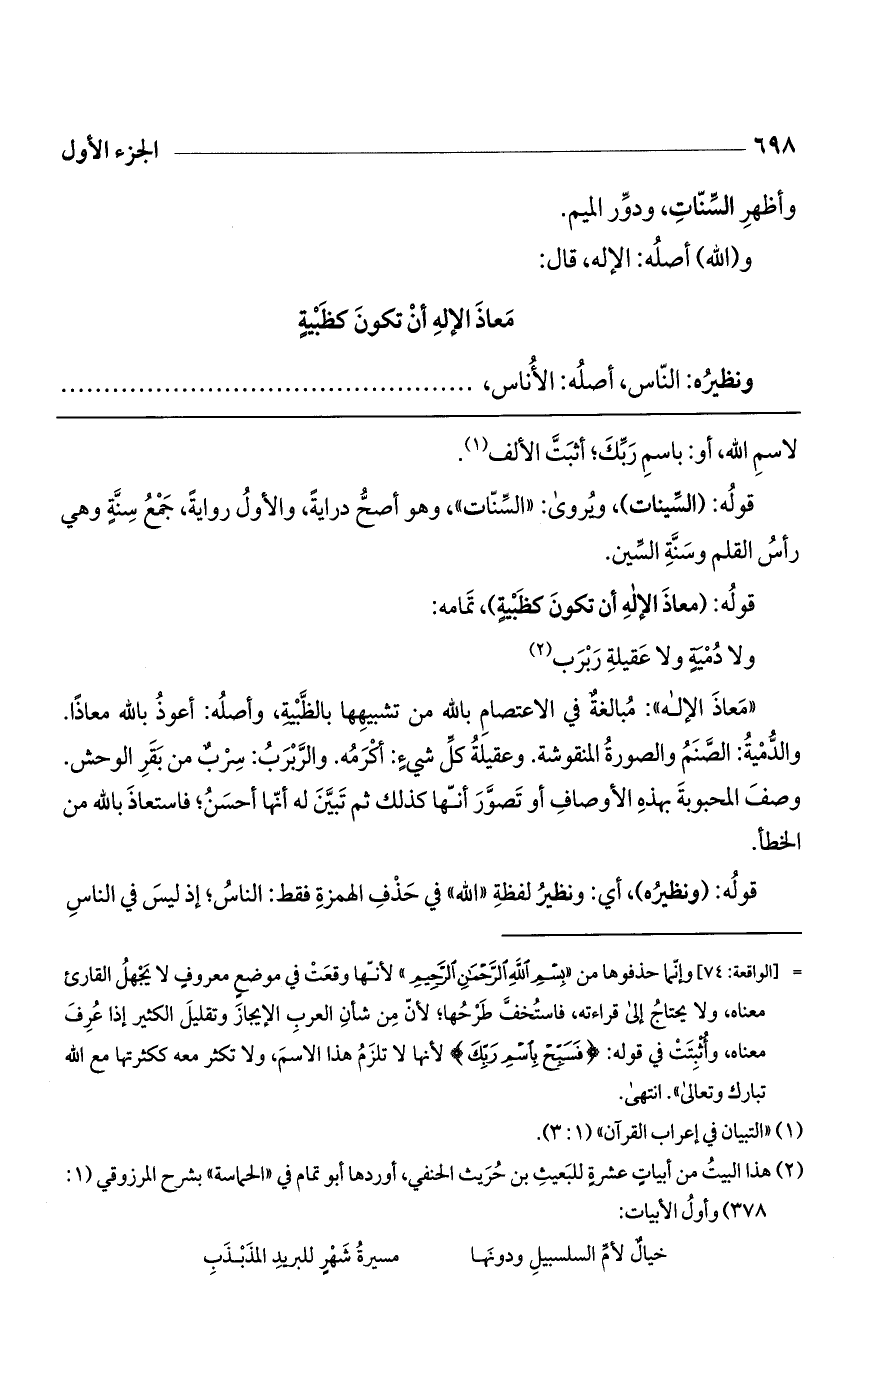 ٦٩٨ الجزء الأول
وأظهرِ السِّنّاتِ، ودوِّر الميم.
و(الله) أصلُه: الإله، قال:
مَعاذَ الإلهِ أنْ تكونَ كظَبْيةٍ
ونظيرُه: النّاس، أصلُه: الأُناس، ................................................
لاسمِ الله، أو: باسمِ رَبِّكَ؛ أثبَتَّ الألف(١).
قولُه: (السِّينات)، ويُروىٰ: «السِّنّات»، وهو أصحُّ درايةً، والأولُ روايةً، جَمْعُ سِنَّةٍ وهي
رأسُ القلم وسَنَّةِ السِّين.
قولُه: (معاذَ الإلٰهِ أن تكونَ كظَبْيةٍ)، تمَامه:
ولا دُمْيَةٍ ولا عَقيلةِ رَبْرَب(٢)
«مَعاذَ الإلـٰه»: مُبالغةٌ في الاعتصامِ بالله من تشبيهِها بالظَّبْيةِ، وأصلُه: أعوذُ بالله معاذًا.
والدُّمْيةُ: الصَّنَمُ والصورةُ المنقوشة. وعقيلةُ كلِّ شيءٍ: أكْرَمُه. والرَّبْرَبُ: سِرْبٌ من بَقَرِ الوحش.
وصفَ المحبوبةَ بهذهِ الأوصافِ أو تَصوَّرَ أنـّها كذلك ثم تَبيَّنَ له أنهّا أحسَنُ؛ فاستعاذَ بالله من
الخطأ.
قولُه: (ونظيرُه)، أي: ونظيرُ لفظةِ «الله» في حَذْفِ الهمزةِ فقط: الناسُ؛ إذ ليسَ في الناسِ
= [الواقعة: ٧٤] وإنّما حذفوها من «بِسْمِ ٱللَّهِ ٱلرَّحْمَـٰنِ ٱلرَّحِيمِ» لأنـّها وقعَتْ في موضعٍ معروفٍ لا يَجْهلُ القارئ
معناه، ولا يحتاجُ إلىٰ قراءته، فاستُخفَّ طَرْحُها؛ لأنّ مِن شأنِ العربِ الإيجازَ وتقليلَ الكثير إذا عُرِفَ
معناه، وأُثْبِتَتْ في قوله: ﴿فَسَبِّحْ بِٱسْمِ رَبِّكَ﴾ لأنها لا تلزَمُ هذا الاسمَ، ولا تكثر معه ككثرتها مع الله
تبارك وتعالىٰ». انتهىٰ.
(١) «التبيان في إعراب القرآن» (١: ٣).
(٢) هذا البيتُ من أبياتٍ عشرةٍ للبَعيثِ بن حُرَيث الحنفي، أوردها أبو تمام في «الحماسة» بشرح المرزوقي (١:
٣٧٨) وأولُ الأبيات:
خيالٌ لأمِّ السلسبيلِ ودونَهـا مسيرةُ شَهْرٍ للبريدِ المذَبْـذَبِ